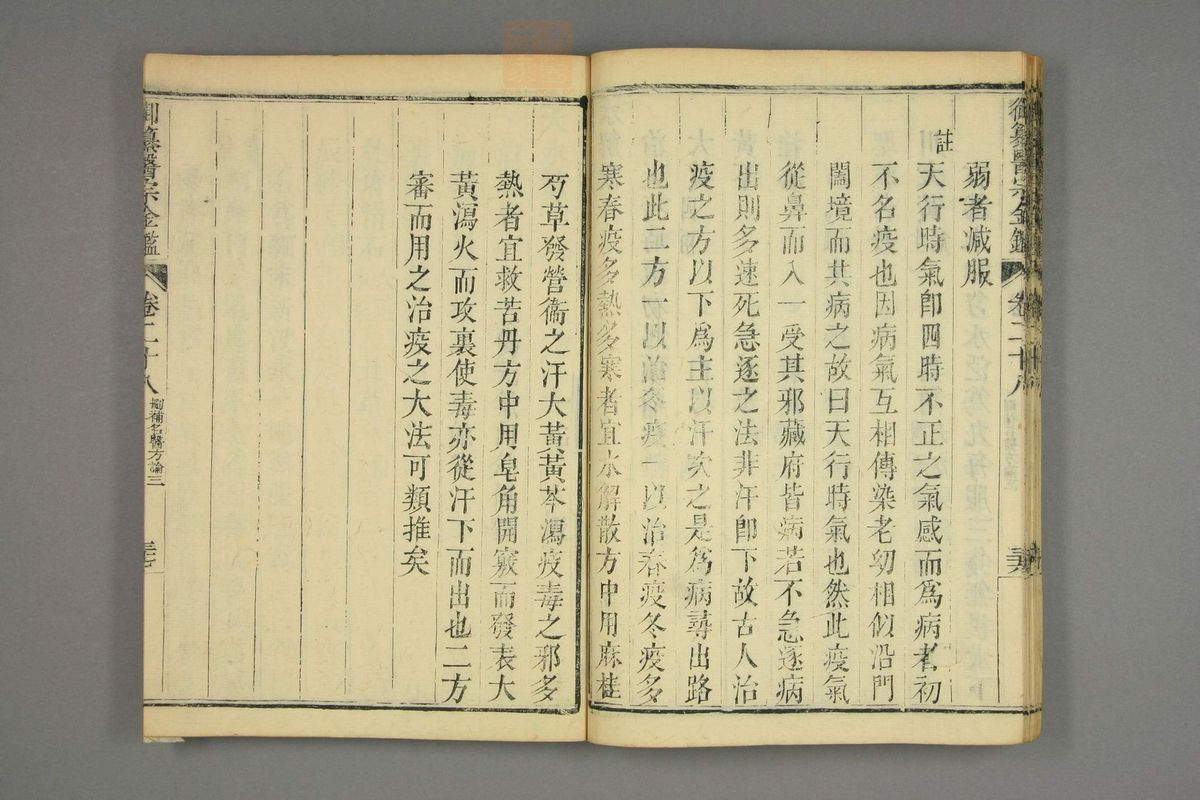 御纂醫宗金鑑
卷二十八
弱者減服
註
天行時氣卽四時不正之氣感而爲病者初
不名疫也因病氣互相傳染老幼相似沿門
闔境而共病之故曰天行時氣也然此疫氣
從鼻而入一受其邪藏府皆病若不急逐病
出則多速死急逐之法非汗卽下故古人治
疫之方以下爲主以汗次之是爲病尋出路
也此二方一以治冬疫一以治春疫冬疫多
寒春疫多熱多寒者宜水解散方中用麻桂
芍草發營衞之汗大黃黃芩瀉疫毒之邪多
熱者宜救苦丹方中用皂角開竅而發表大
黃瀉火而攻裏使毒亦從汗下而出也二方
審而用之治疫之大法可類推矣
御纂醫宗金鑑
卷二十八
刪補名醫方論三